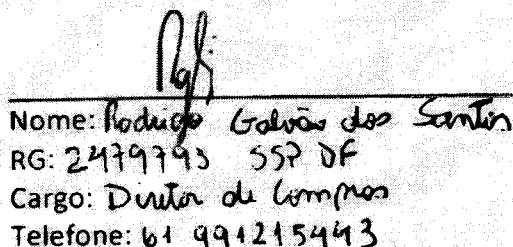 Nome: Rodrigo Galvão dos Santos
RG: 2479793 SSP DF
Cargo: Diretor de Compras
Telefone: 61 991215443